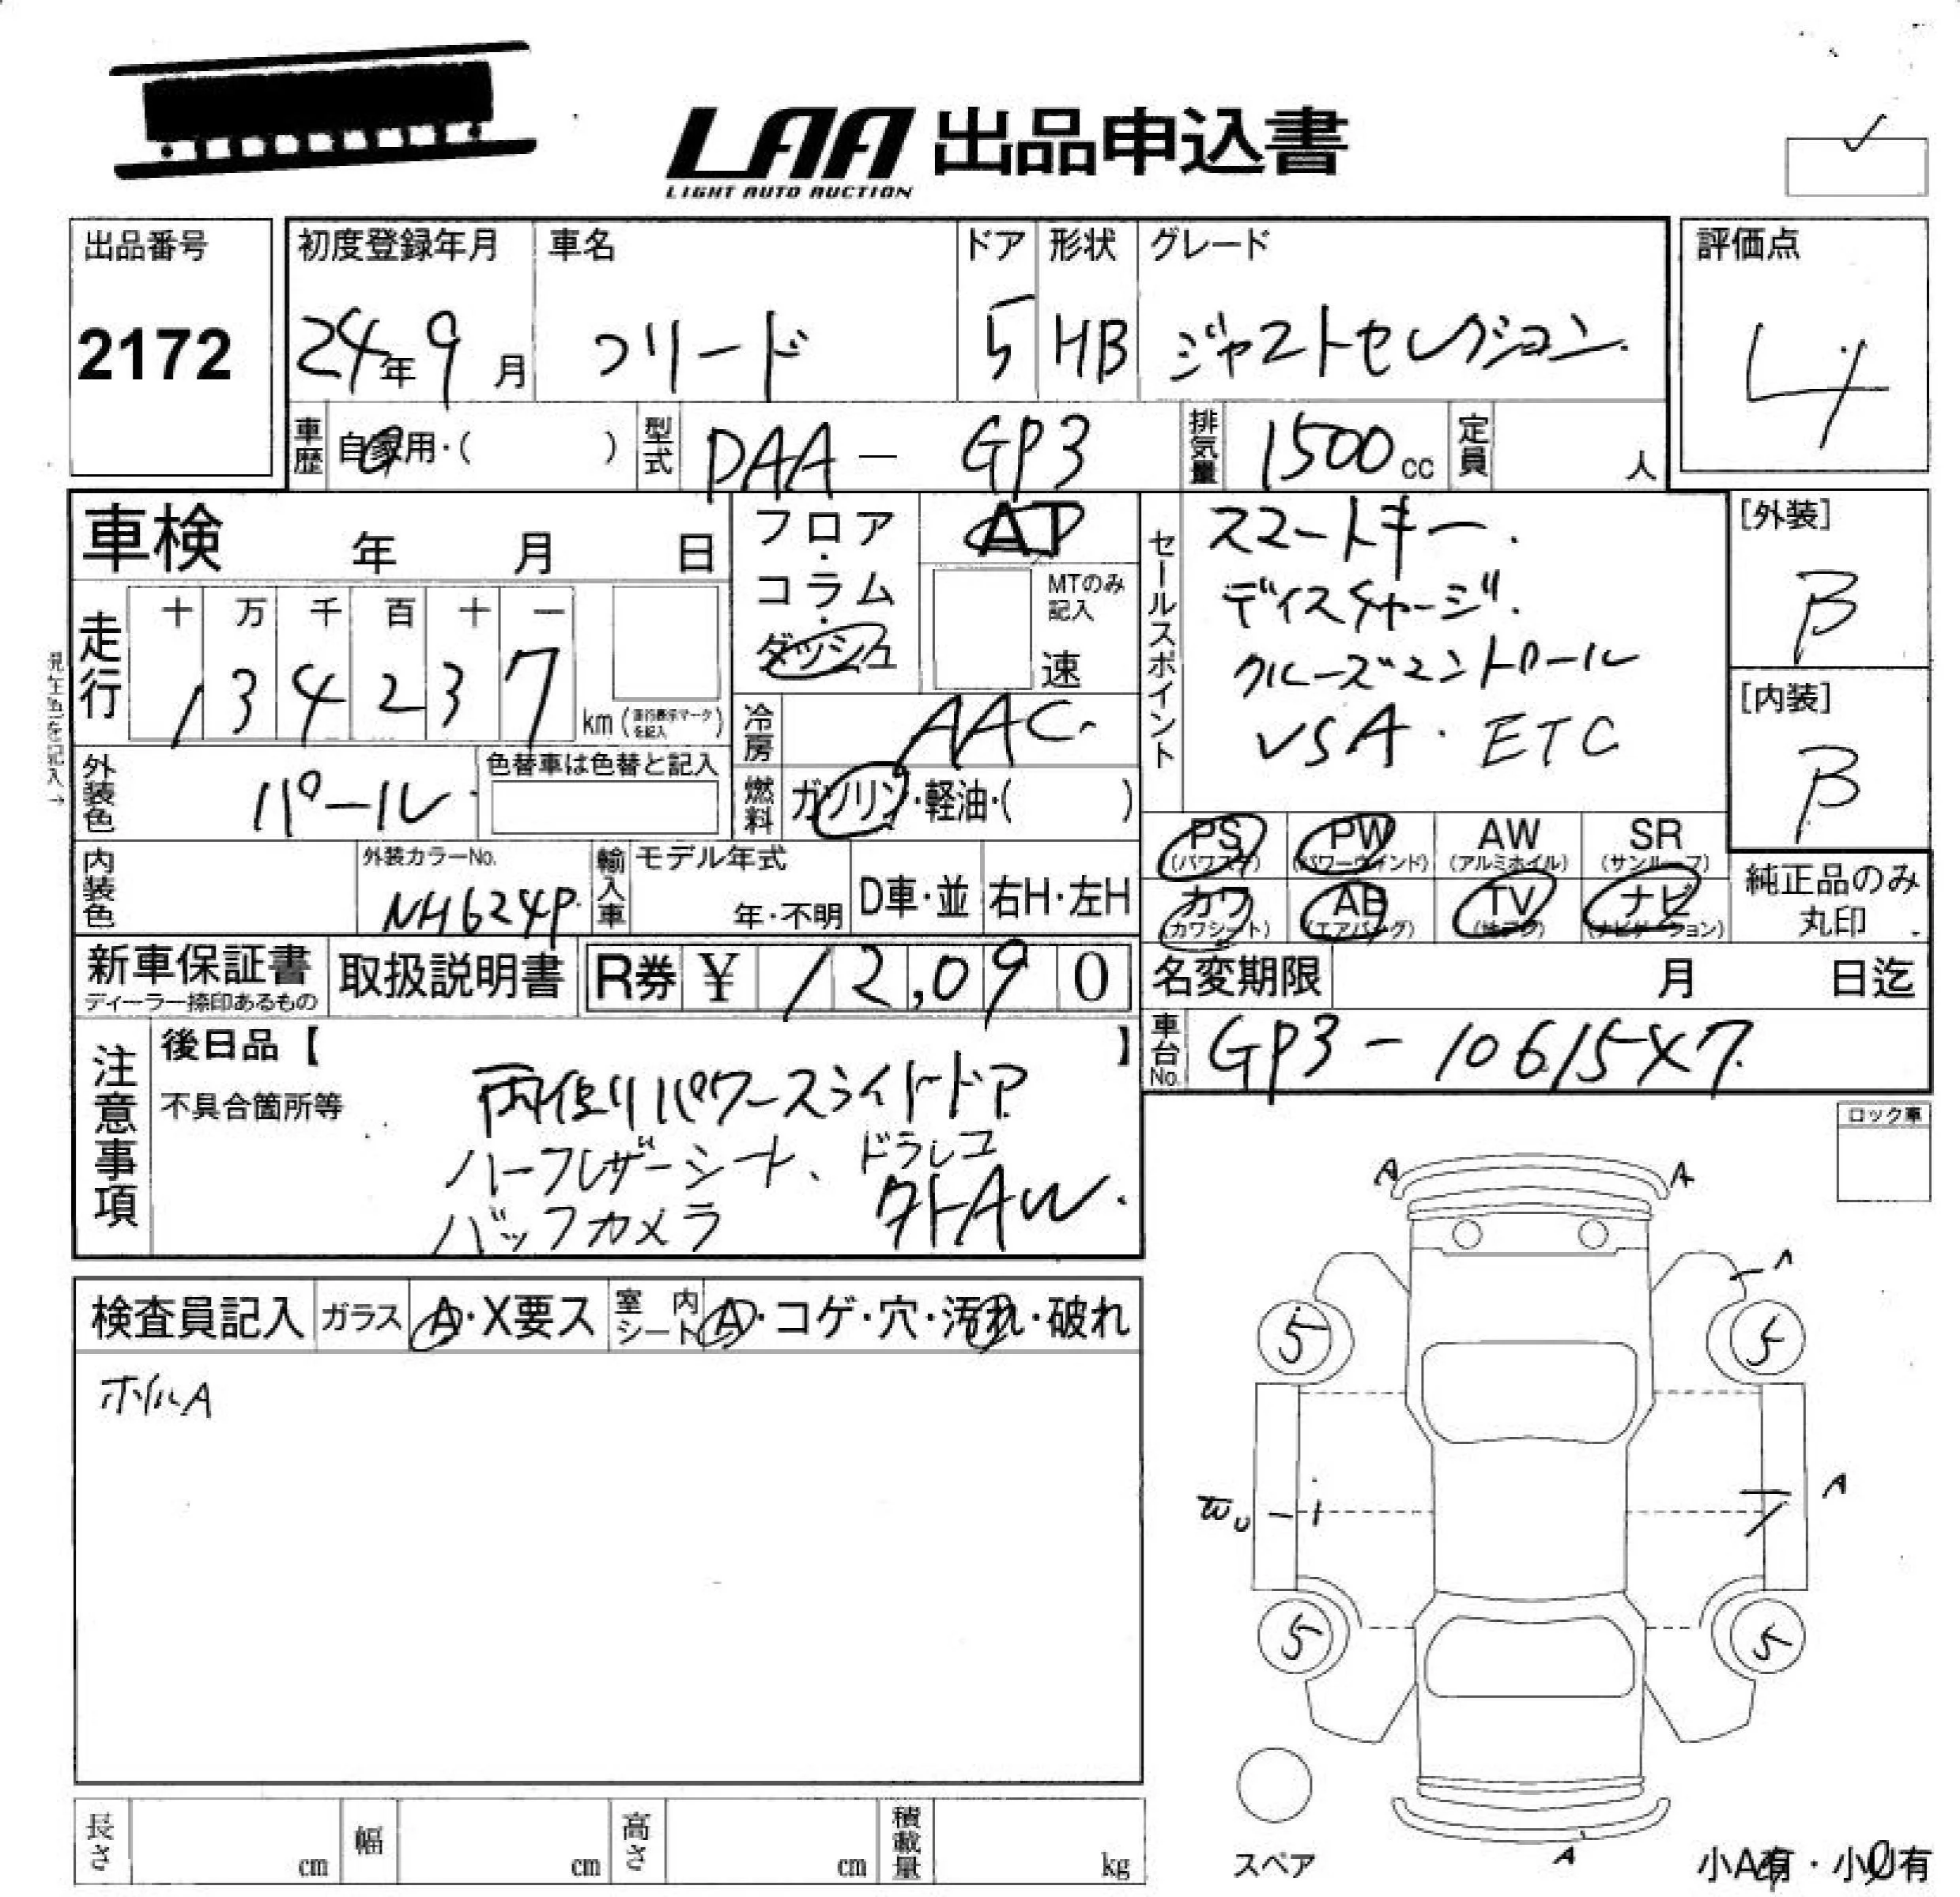 LAA 出品申込書
LIGHT AUTO AUCTION
出品番号
2172
初度登録年月
24年9月
車名
フリード
ドア
5
形状
HB
グレード
ジャストセレクション
評価点
4
車歴
自家用・( )
型式
DAA - GP3
排気量
1500cc
定員
人
車検 年 月 日
走行
十 万 千 百 十 一
1 3 4 2 3 7
km (走行表示マークを記入)
フロア・コラム・ダッシュ
AT
MTのみ記入
速
冷房
AAC
燃料
ガソリン・軽油・( )
セールスポイント
スマートキー.
ディスチャージ.
クルーズコントロール
VSA・ETC
[外装]
B
[内装]
B
現在色を記入→
外装色
パール
色替車は色替と記入
内装色
外装カラーNo.
NH624P
輸入車
モデル年式
年・不明
D車・並
右H・左H
PS
(パワステ)
PW
(パワーウィンド)
AW
(アルミホイル)
SR
(サンルーフ)
カワ
(カワシート)
AB
(エアバッグ)
TV
(地デジ)
ナビ
(ナビゲーション)
純正品のみ
丸印
新車保証書
ディーラー捺印あるもの
取扱説明書
R券 ¥ 12,090
名変期限 月 日迄
車台No.
GP3-10615X7
注意事項
後日品【 】
不具合箇所等
両側パワースライドドア
ハーフレザーシート、ドラレコ
バックカメラ 外AW.
ロック車
検査員記入
ガラス
A・X要ス
室内シート
A・コゲ・穴・汚れ・破れ
ホイルA
A A
A
5 5
A
W U
5 5
スペア
A
小A有・小U有
長さ cm
幅 cm
高さ cm
積載量 kg